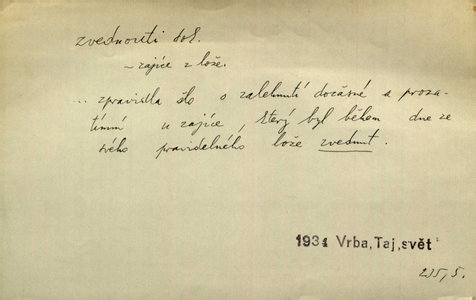 zvednouti dok.
~ zajíce z lože.
... zpravidla šlo o zalehnutí dočasné a proza-
tímní u zajíce, který byl během dne ze
svého pravidelného lože zvednut.
1931 Vrba, Taj, svět
235, 5.